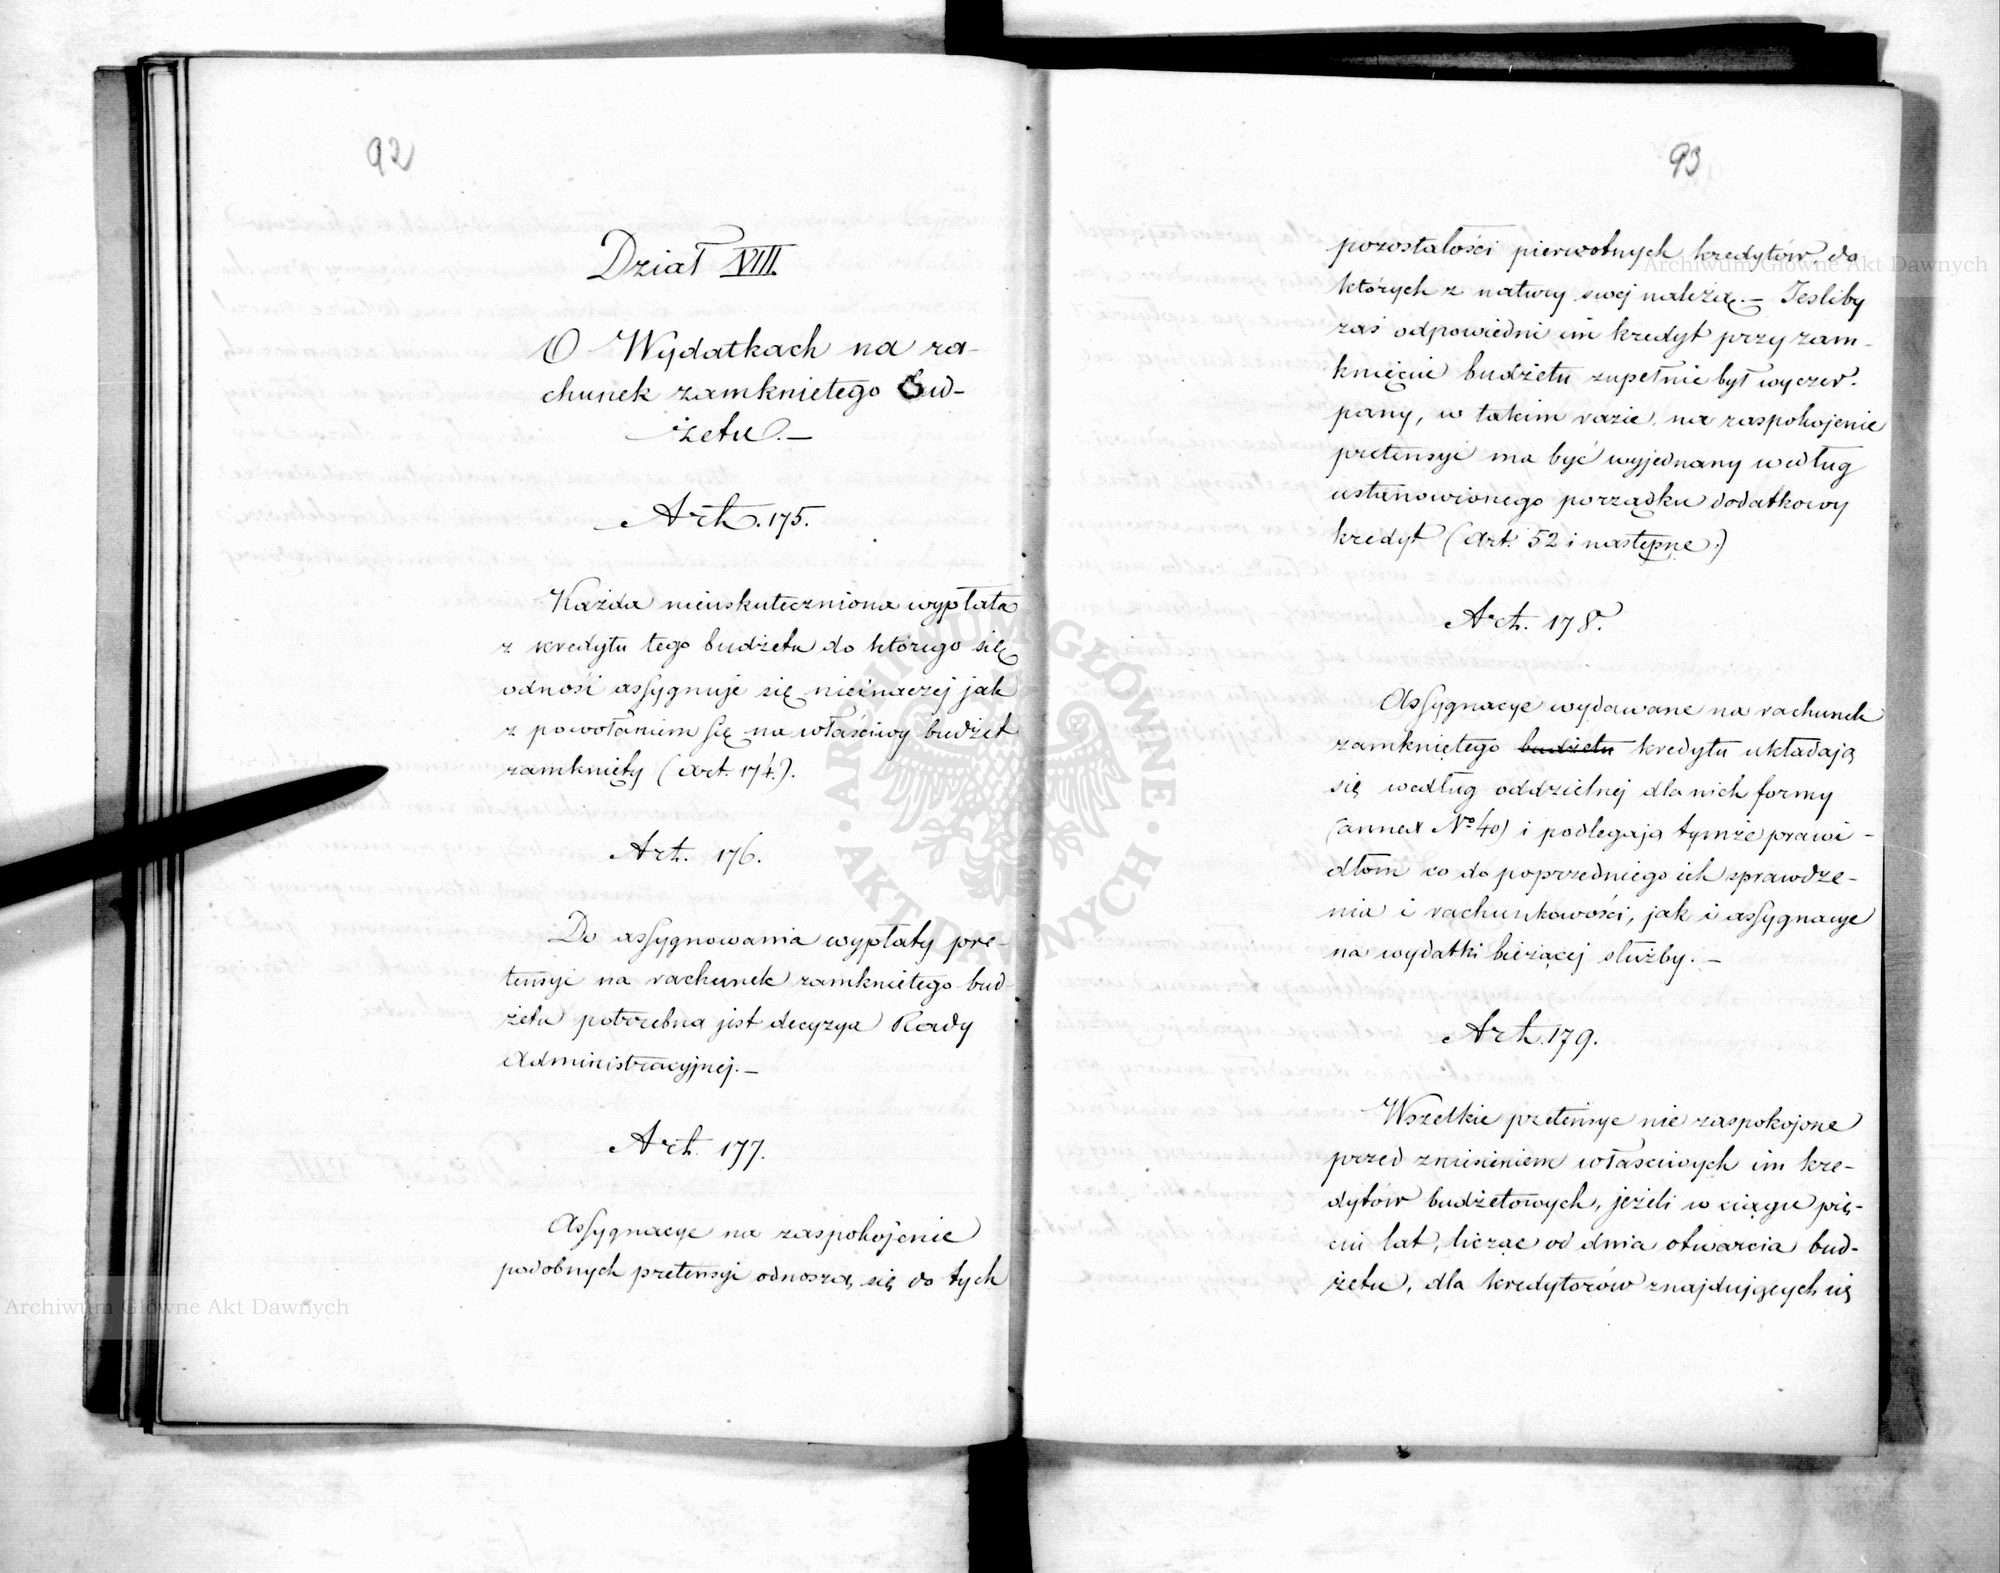 92
Dział VIII.
O Wydatkach na ra-
chunek zamkniętego Bud-
żetu.—
Art. 175.
Każda nieuskuteczniona wypłata
z kredytu tego budżetu do którego się
odnosi assygnuje się nieinaczej jak
z powołaniem się na właściwy budżet
zamknięty (Art. 174.).
Art. 176.
Do assygnowania wypłaty pre-
tensyi na rachunek zamkniętego bud-
żetu potrzebna jest decyzya Rady
Administracyjnej.—
Art. 177.
Assygnacye na zaspokojenie
podobnych pretensyi odnoszą się do tych
93
pozostałości pierwotnych kredytów do
których z natury swej należą.— Jesliby
zaś odpowiedni im kredyt przy zam-
knięciu budżetu zupełnie był wyczer-
pany, w takim razie, na zaspokojenie
pretensyi ma być wyjednany według
ustanowionego porządku dodatkowy
kredyt (Art. 52 i następne.)
Art. 178.
Assygnacye wydawane na rachunek
zamkniętego budżetu kredytu układają
się według oddzielnej dla nich formy
(annex No 40) i podlegają tymże prawi-
dłom co do poprzedniego ich sprawdze-
nia i rachunkowości, jak i assygnacye
na wydatki bieżącej służby.—
Art. 179.
Wszelkie pretensye nie zaspokojone
przed zniesieniem właściwych im kre-
dytów budżetowych, jeżeli w ciągu pię-
ciu lat, licząc od dnia otwarcia bud-
żetu, dla kredytorów znajdujących się
Archiwum Główne Akt Dawnych
Archiwum Główne Akt Dawnych
ARCHIWUM GŁÓWNE
AKT DAWNYCH